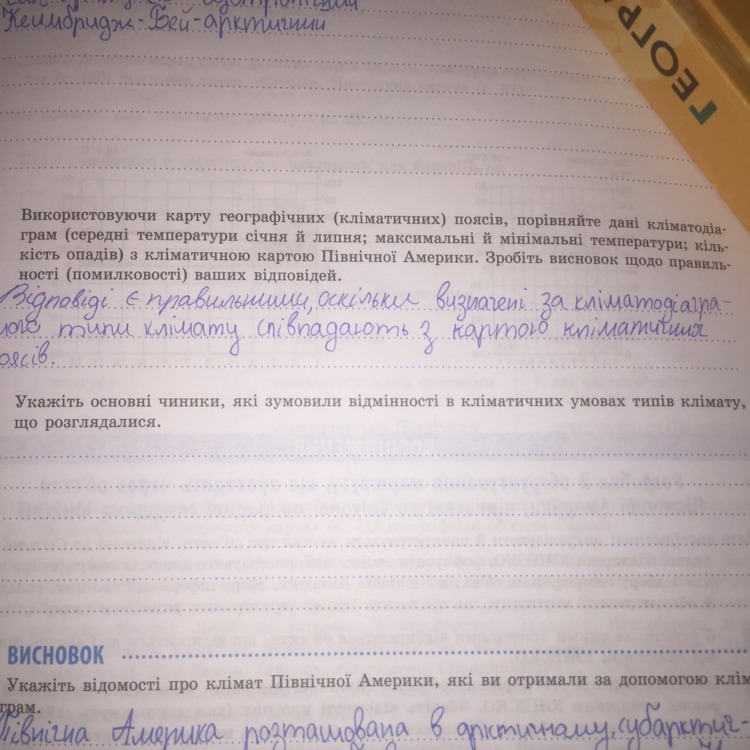 Кембридж-Бей-арктичний
ГЕОГРА
Використовуючи карту географічних (кліматичних) поясів, порівняйте дані кліматодіа-
грам (середні температури січня й липня; максимальні й мінімальні температури; кіль-
кість опадів) з кліматичною картою Північної Америки. Зробіть висновок щодо правиль-
ності (помилковості) ваших відповідей.
Відповіді є правильними, оскільки визначені за кліматодіагра-
мою типи клімату співпадають з картою кліматичних
оясів.
Укажіть основні чиники, які зумовили відмінності в кліматичних умовах типів клімату,
що розглядалися.
ВИСНОВОК
Укажіть відомості про клімат Північної Америки, які ви отримали за допомогою клім
грам.
Північна Америка розташована в арктичному, субарктич-